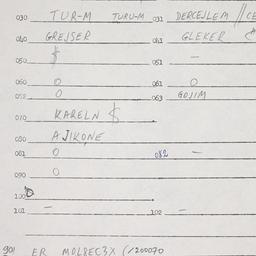 030 TUR-M TURU-M 031 DERCEJLEM // CE
040 GREJSER 041 GLEKER
050 051 —
060 O 061 O
052 O 063 GOJIM
070 KARELN
080 AJIKONE
081 O 082 —
090 O
100
101 — 102 —
901 ER MOLREC3X (1200070